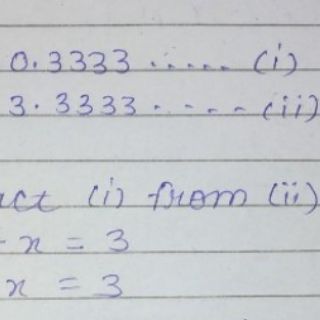 0.3333 ..... (i)
3.3333 ..... (ii)
act (i) from (ii)
- x = 3
x = 3